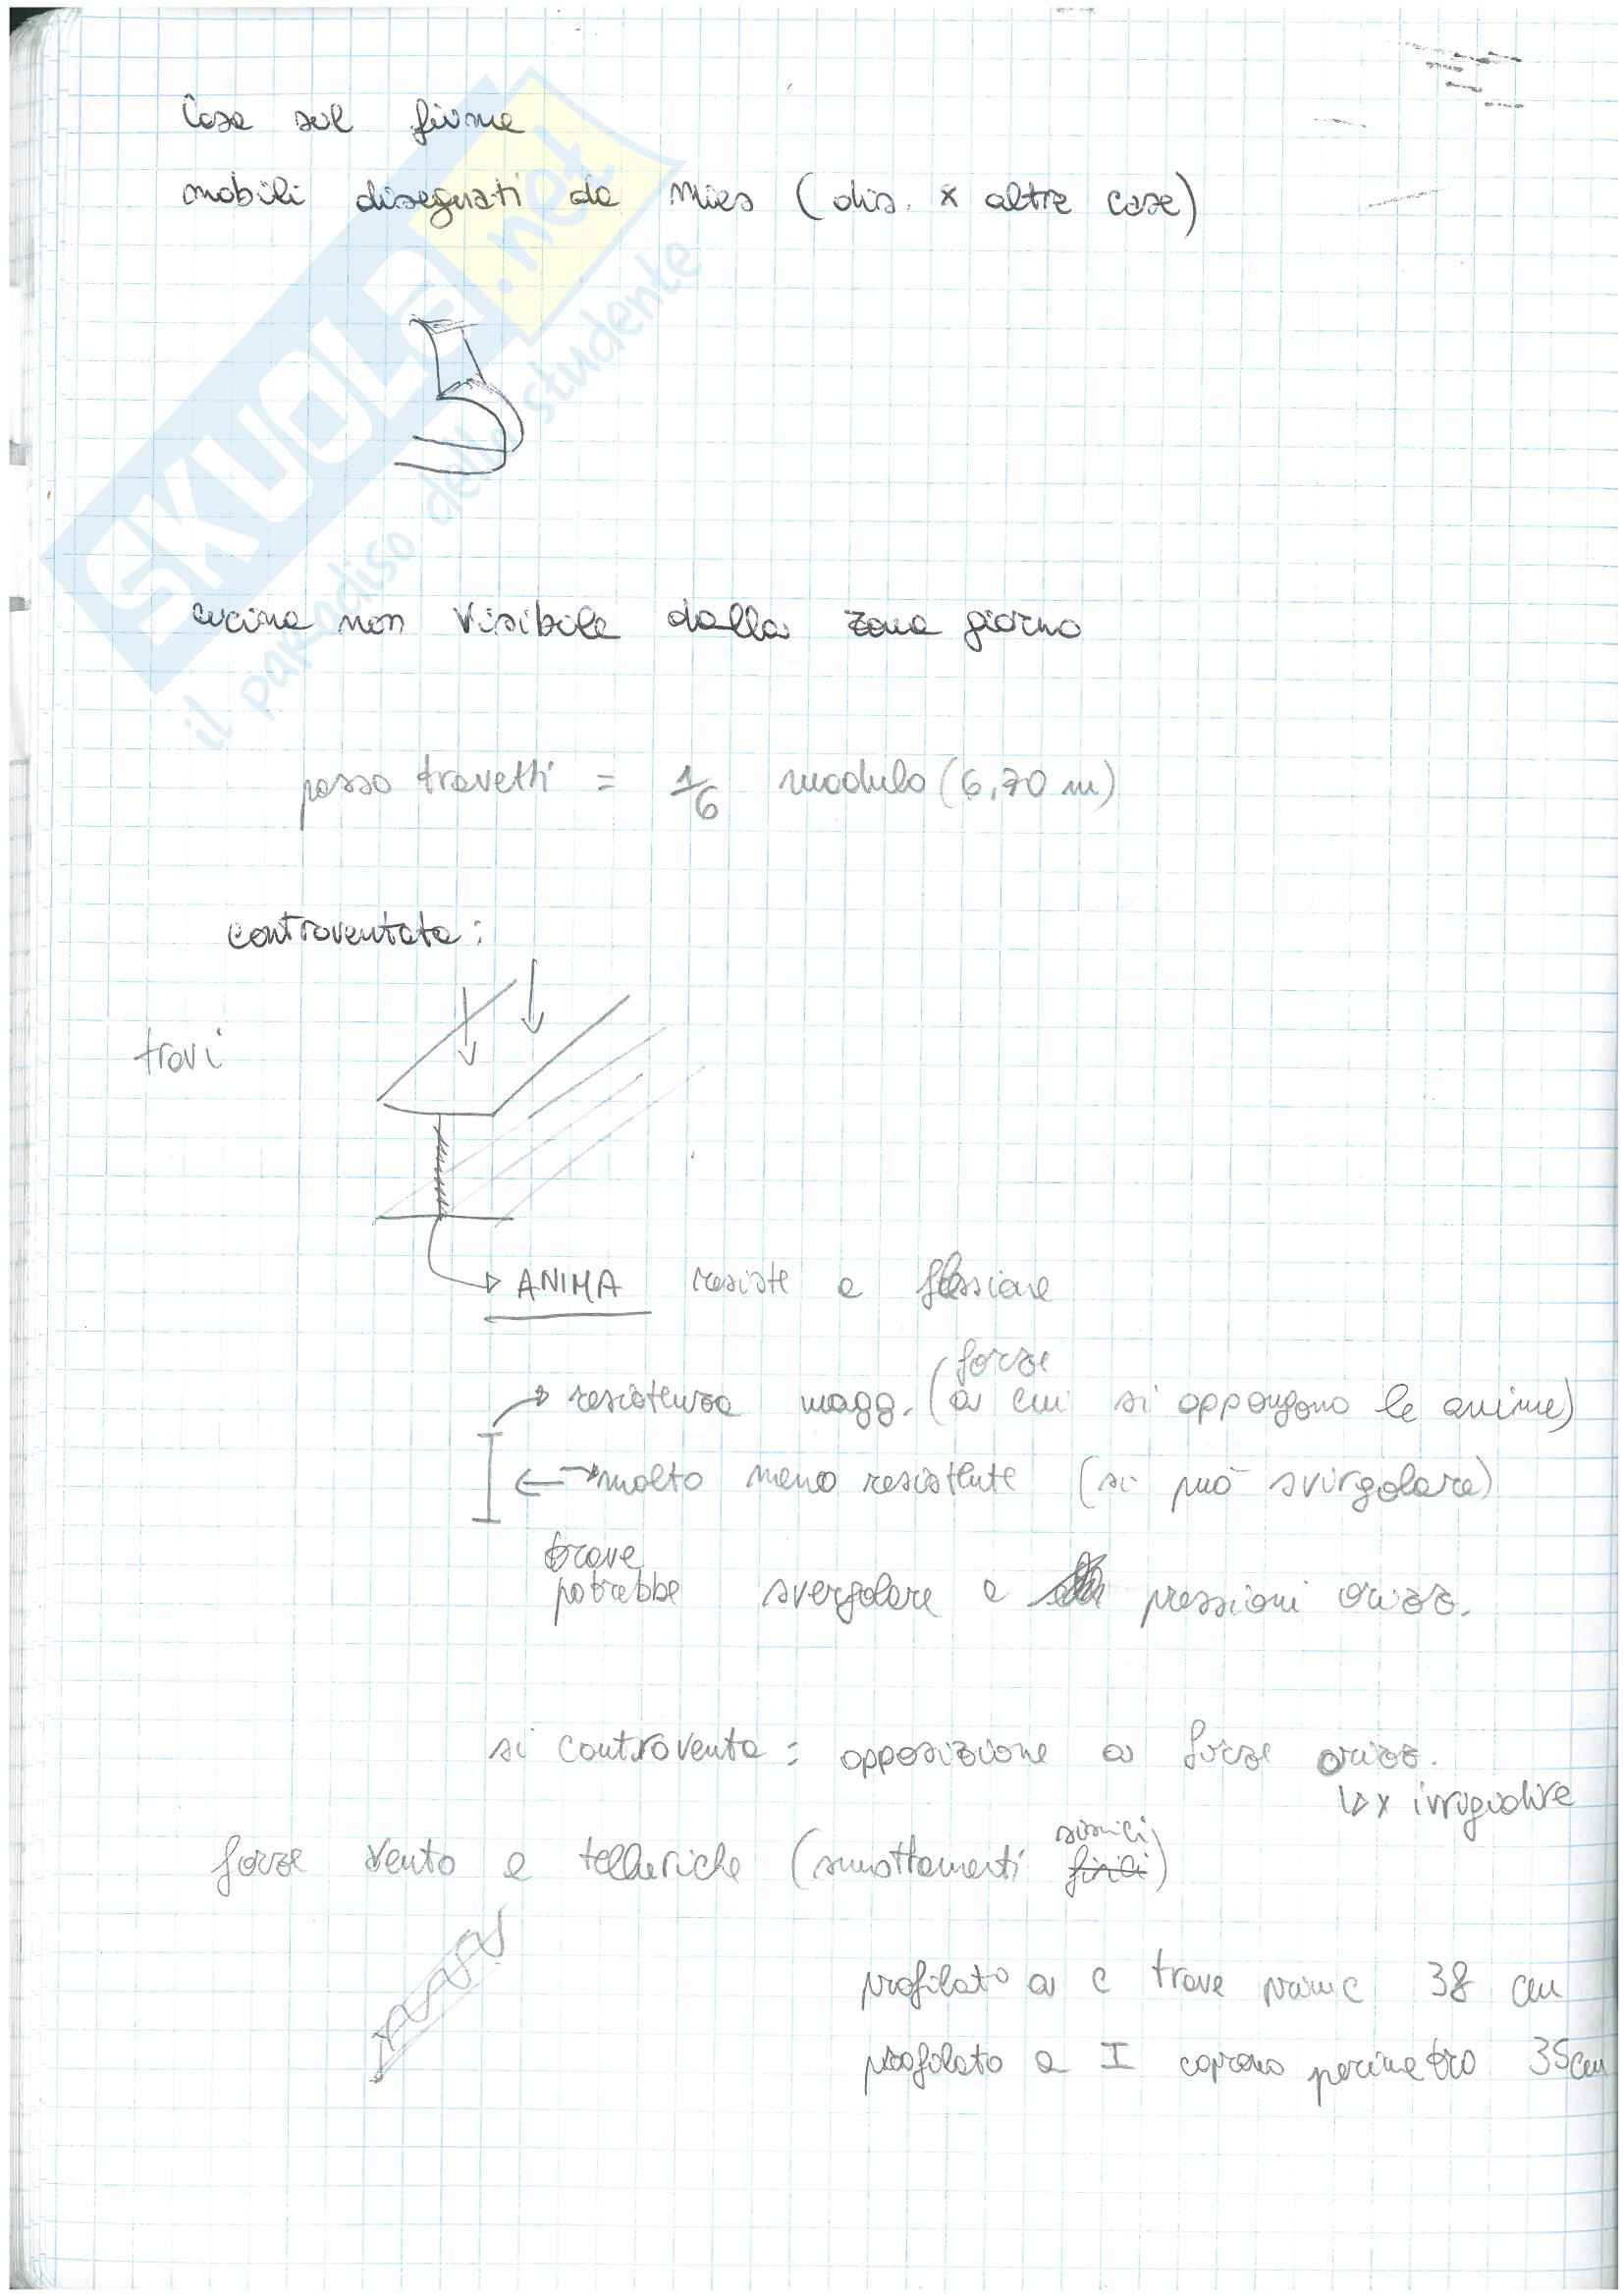 Casa sul fiume
mobili disegnati da Mies (dis. x altre case)
cucina non visibile dalla zona giorno
passo travetti = 1/6 modulo (6,70 m)
controventata:
travi
ANIMA resiste a flessione
forze
resistenza magg. (a cui si oppongono le anime)
molto meno resistente (si può svirgolare)
trave
potrebbe svergolare a pressioni orizz.
si controventa: opposizione a forze orizz.
x irrigidire
sismici
forze vento e telluriche (smottamenti fisici)
profilato a C trave princ 38 cm
profilato a I coprono perimetro 35cm
SKUOLA.net
il paradiso dello studente